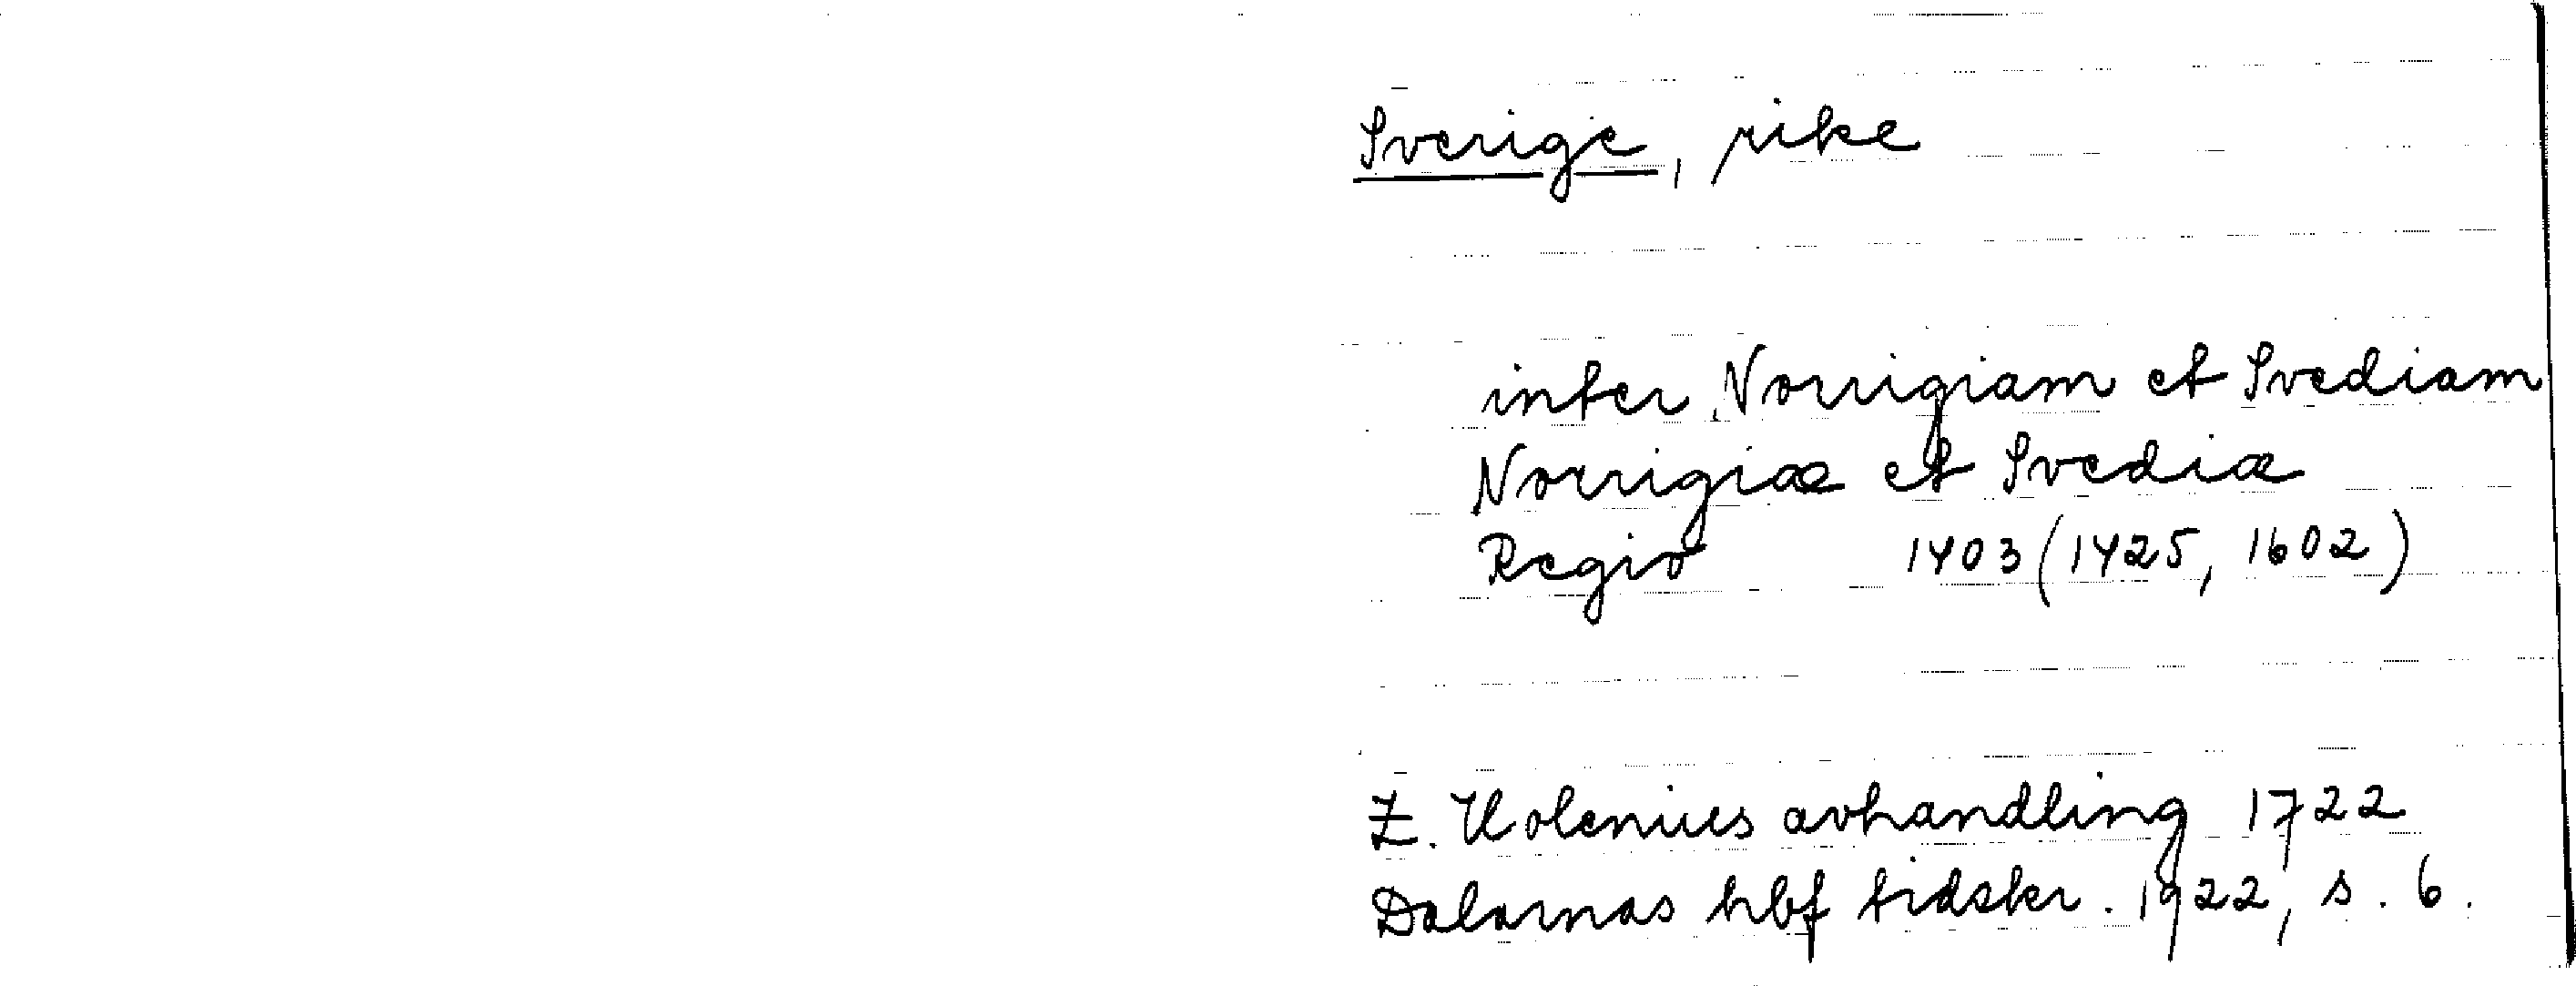 Sverige, rike
inter Norrigiam et Svediam
Norrigiæ et Svediæ
Regio 1403 (1425, 1602)
Z. Holenius avhandling 1722
Dalarnas hbf tidskr. 1922, s. 6.